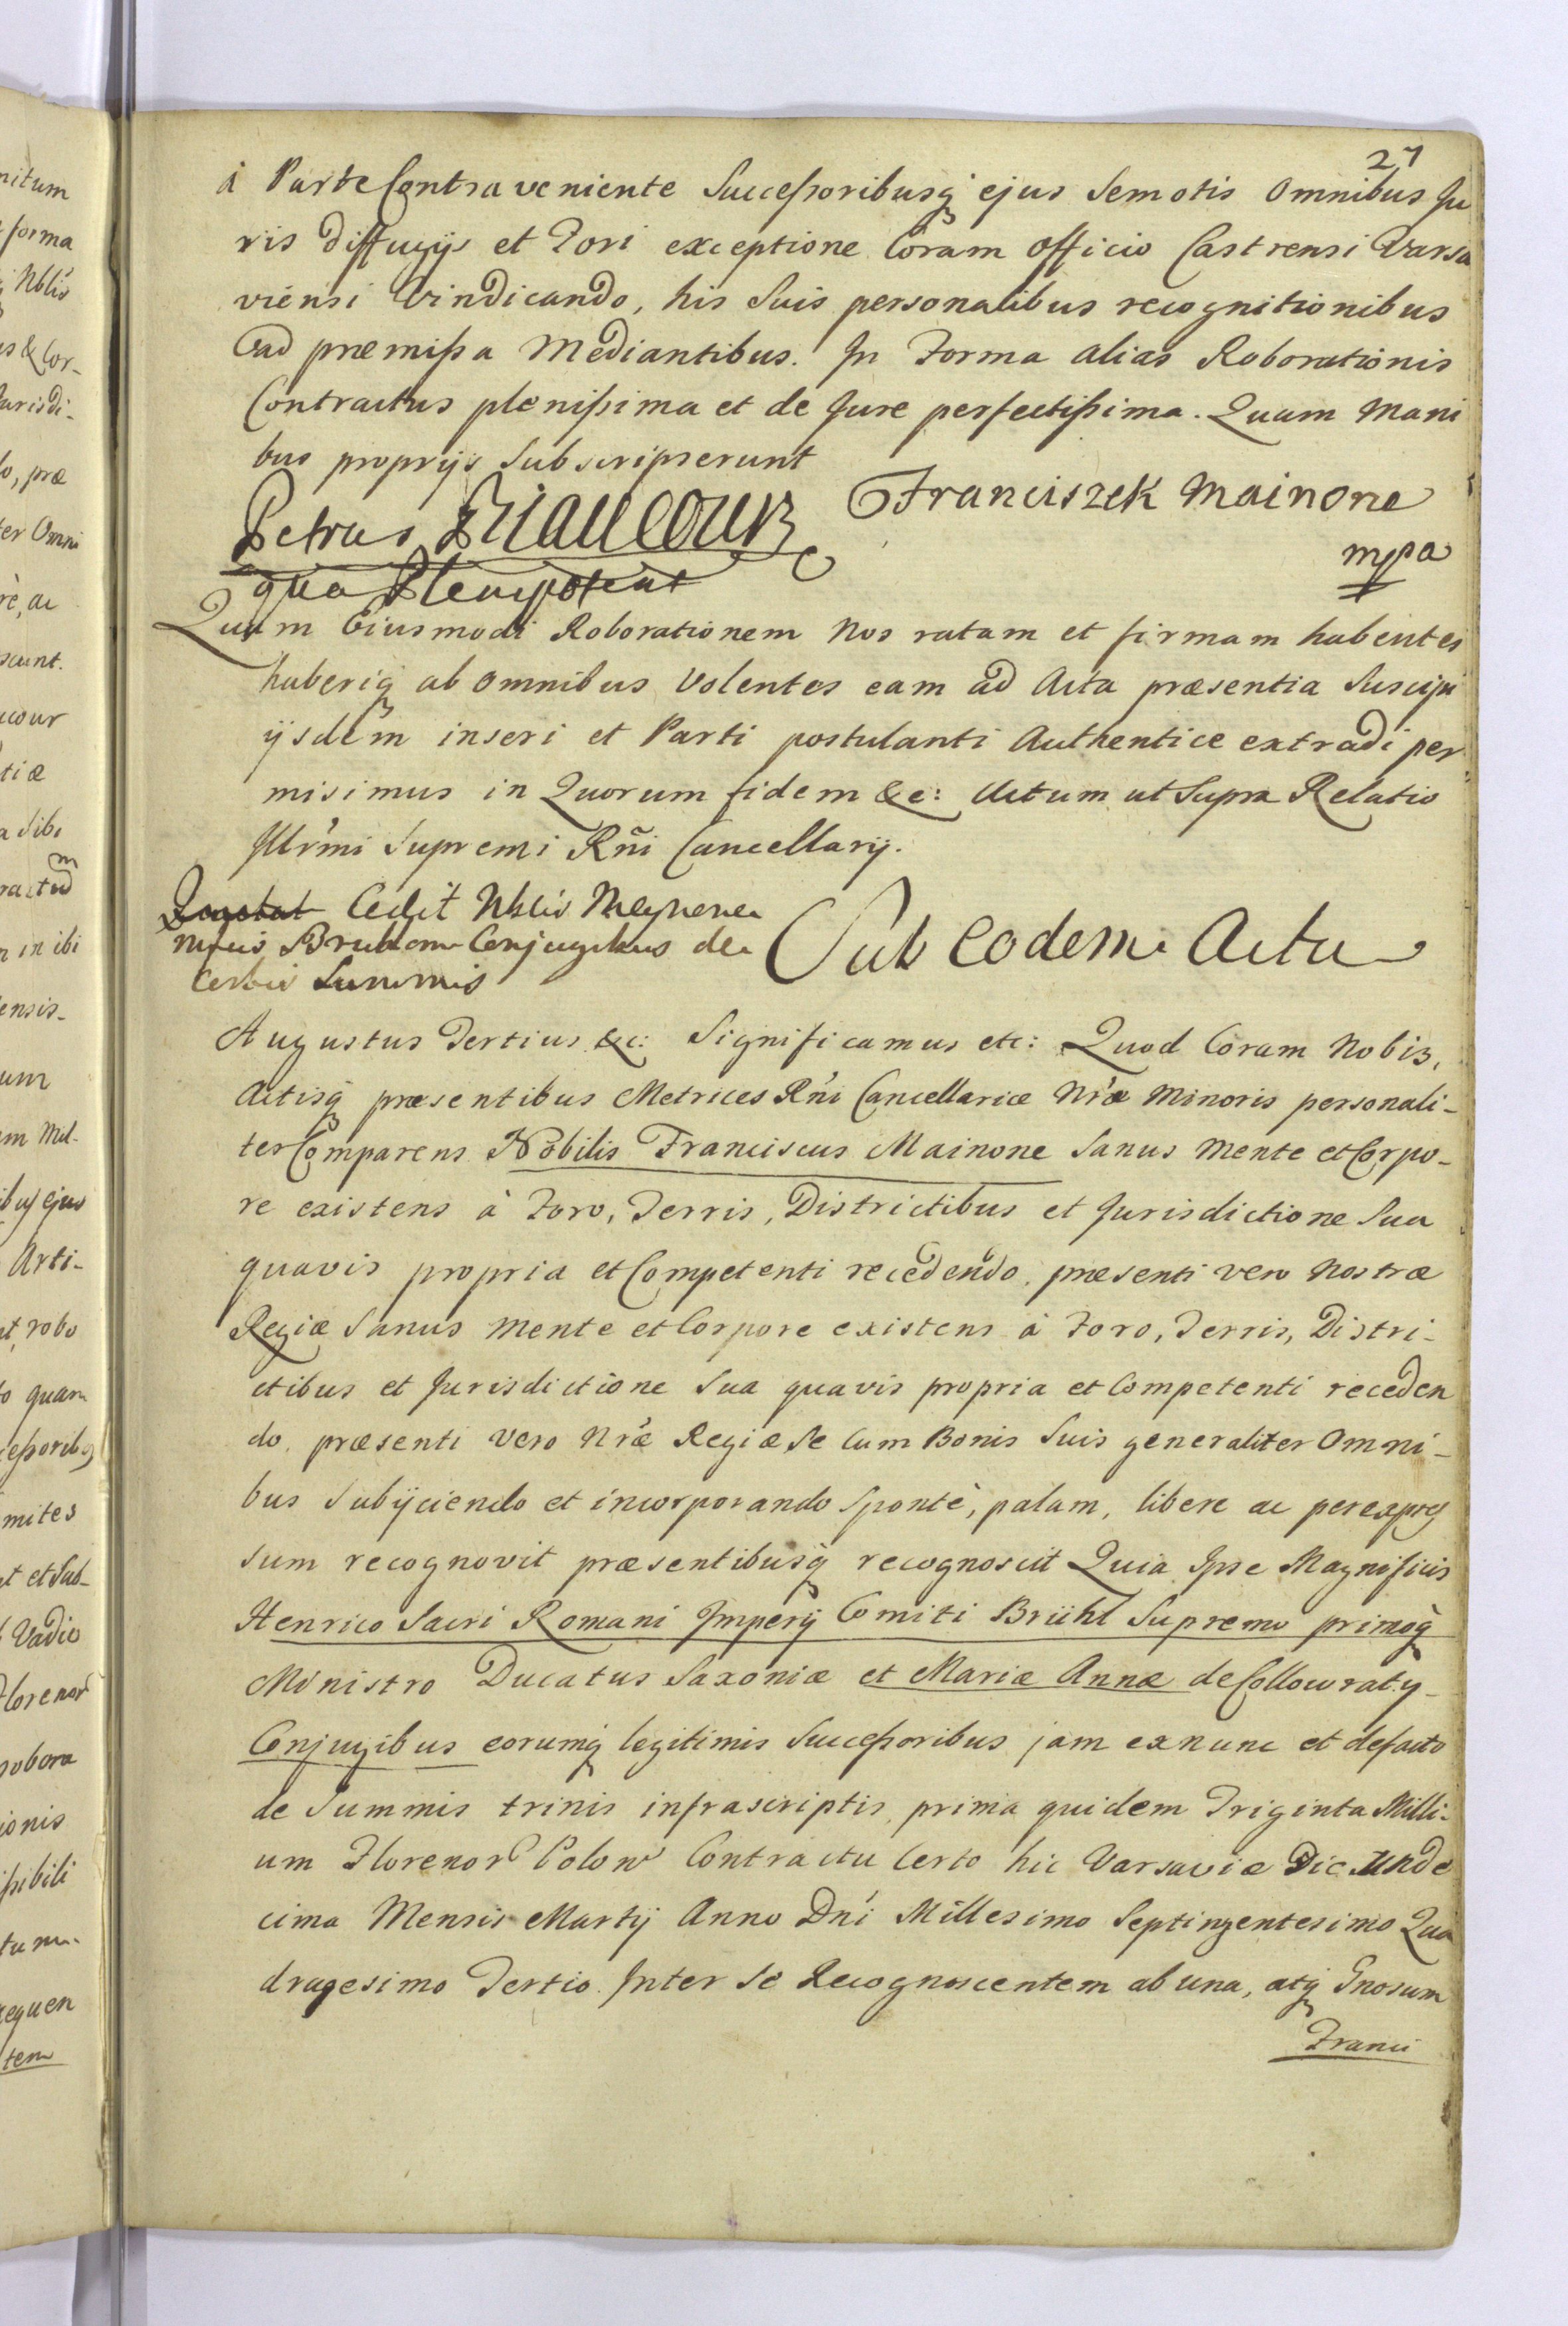 27
à Parte Contraveniente Succeßoribusq ejus Semotis Omnibus Ju
ris Diffugijs et Fori exceptione Coram Officio Castrensi Varsa
viensi Vindicando, his Suis personalibus recognitionibus
ad præmißa Mediantibus. In Forma alias Roborationis
Contractus plenißima et de Jure perfectißima. Quam Mani
bus proprijs Subscripserunt
Petrus Riaucour Franciszek Mainone
mpa
qua Plenipotent
Quam Eiusmodi Roborationem Nos ratam et firmam habentes
haberiq ab Omnibus Volentes eam ad Acta præsentia Suscipi
ijsdem inseri et Parti postulanti Authentice extradi per
misimus in Quorum fidem &c: Actum ut Supra Relatio
Illr̃mi Supremi Rñi Cancellarij.
Cedit Nblis Meynone
Mficis Bruhlom Conjugibus de
Certis Summis
Sub eodem Actu
Augustus Tertius &c: Significamus etc: Quod Coram Nobis,
Actisq præsentibus Metrices Rñi Cancellariæ Nræ Minoris personali-
ter Comparens Nobilis Franciscus Mainone Sanus Mente et Corpo-
re existens à Foro, Terris, Districtibus et Jurisdictione Sua
quavis propria et Competenti recedendo, præsenti vero Nostræ
Regiæ Sanus Mente et Corpore existens à Foro, Terris, Distri-
ctibus et Jurisdictione Sua quavis propria et Competenti receden
do, præsenti Vero Nræ Regiæ Se Cum Bonis Suis generaliter Omni-
bus Subijciendo et incorporando Spontè, palam, libere ac per expreß
sum recognovit præsentibusq recognoscit Quia Ipse Magnificis
Henrico Sacri Romani Imperij Comiti Brühl Supremo primoq
Ministro Ducatus Saxoniæ et Mariæ Annæ de Collowraty
Conjugibus eorumq legitimis Succeßoribus jam ex nunc et de facto
de Summis trinis infrascriptis, prima quidem Triginta Milli-
um Florenor Polon Contractu Certo hic Varsaviæ Die Unde
cima Mensis Martij Anno Dni Millesimo Septingentesimo Qua
dragesimo Tertio Inter Se Recognoscentem ab una, atq Gnosum
Franci